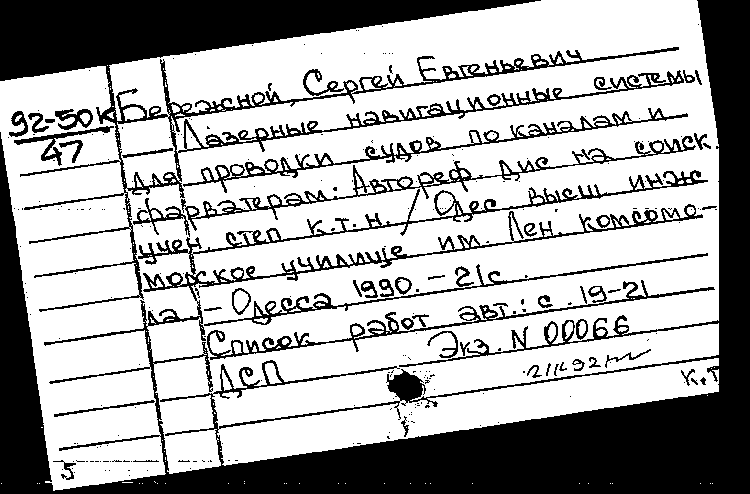 92-50к
47
Бережной, Сергей Евгеньевич
Лазерные навигационные системы
для проводки судов по каналам и
фарватерам: Автореф. дис на соиск.
учен. степ к.т.н. / Одес. высш инж
морское училище им. Лен. комсомо-
ла. - Одесса, 1990. - 21с.
Список работ авт.: с. 19-21
Экз. N 00066
ДСП
к.т
5